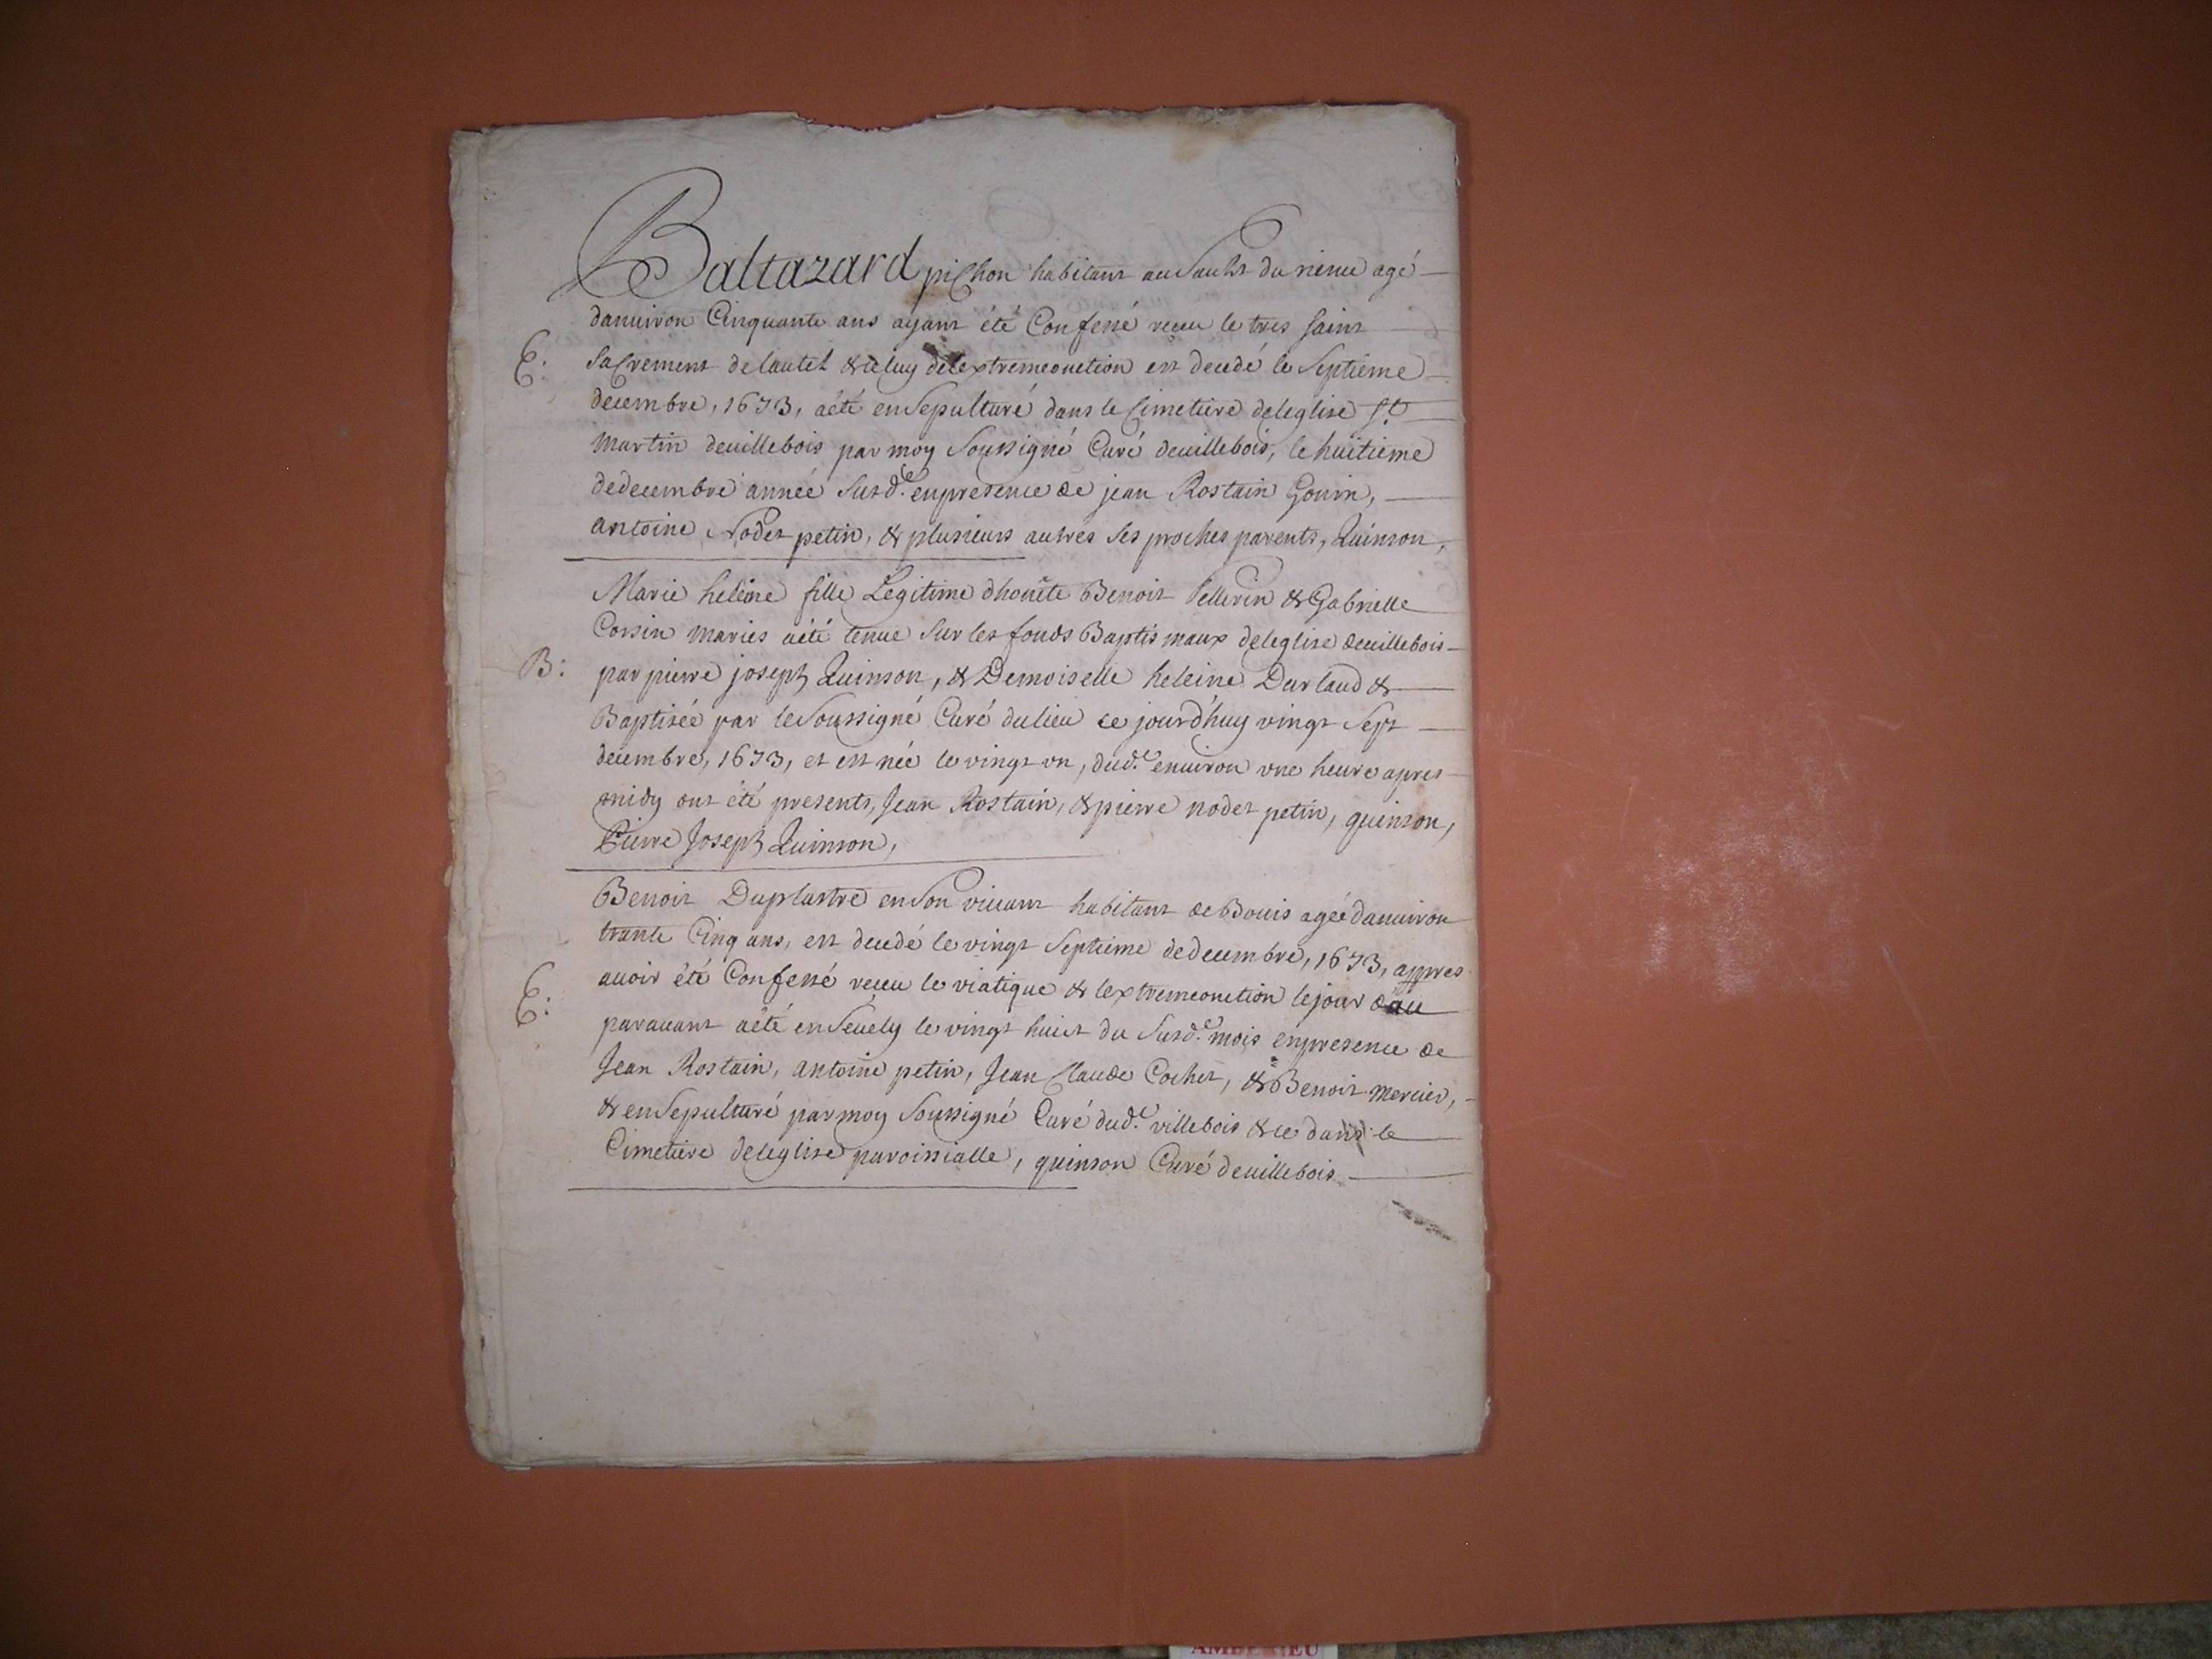 Baltazard pichon habitant au Sault du rieue agé
danuiron Cinquante ans ayant été Confessé receu le tres saint
E: Sacrement de lautel & celuy de lextremeonction est decedé le Septiéme
decembre, 1673, aété enSepulturé dans le Cimetiere deleglise St
Martin deuillebois par moy Soussigné Curé deuillebois, le huitieme
dedecembre année Susd.e enpresence de jean Rostain Gonin,
antoine Nodet petin, & plusieurs autres ses proches parents, Quinson,
Marie heleine fille Legitime dhonête Benoit Pellerin & Gabrielle
Corsin mariés aété tenue Sur les fonds Baptismaux deleglise deuillebois
B: par pierre joseph Quinson, & Demoiselle heleine Darlaud &
Baptisée par le Soussigné Curé dulieu ce jourdhuy vingt Sept
decembre, 1673, et est née le vingt vn, dud.e enuiron vne heure apres
midy ont été presents, Jean Rostain, & pierre nodet petin, quinson,
Pierre Joseph Quinson,
Benoit Duplastre en Son viuant habitant de Bouis ageé danuiron
trante Cinq ans, est decedé le vingt Septiéme dedecembre, 1673, appres
E: auoir été Confessé receu le viatique & lextremeonction le jour au
parauant aété enSeuely le vingt huict du Susd.e mois enpresence de
Jean Rostain, antoine petin, Jean Claude Cochet, & Benoit Mercier,
& enSepulturé parmoy Soussigné Curé dud.e villebois & ce dans le
Cimetiere deleglise paroissialle, quinson Curé deuillebois